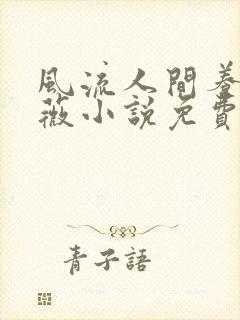 風流人間養
薇小說免費
青子語